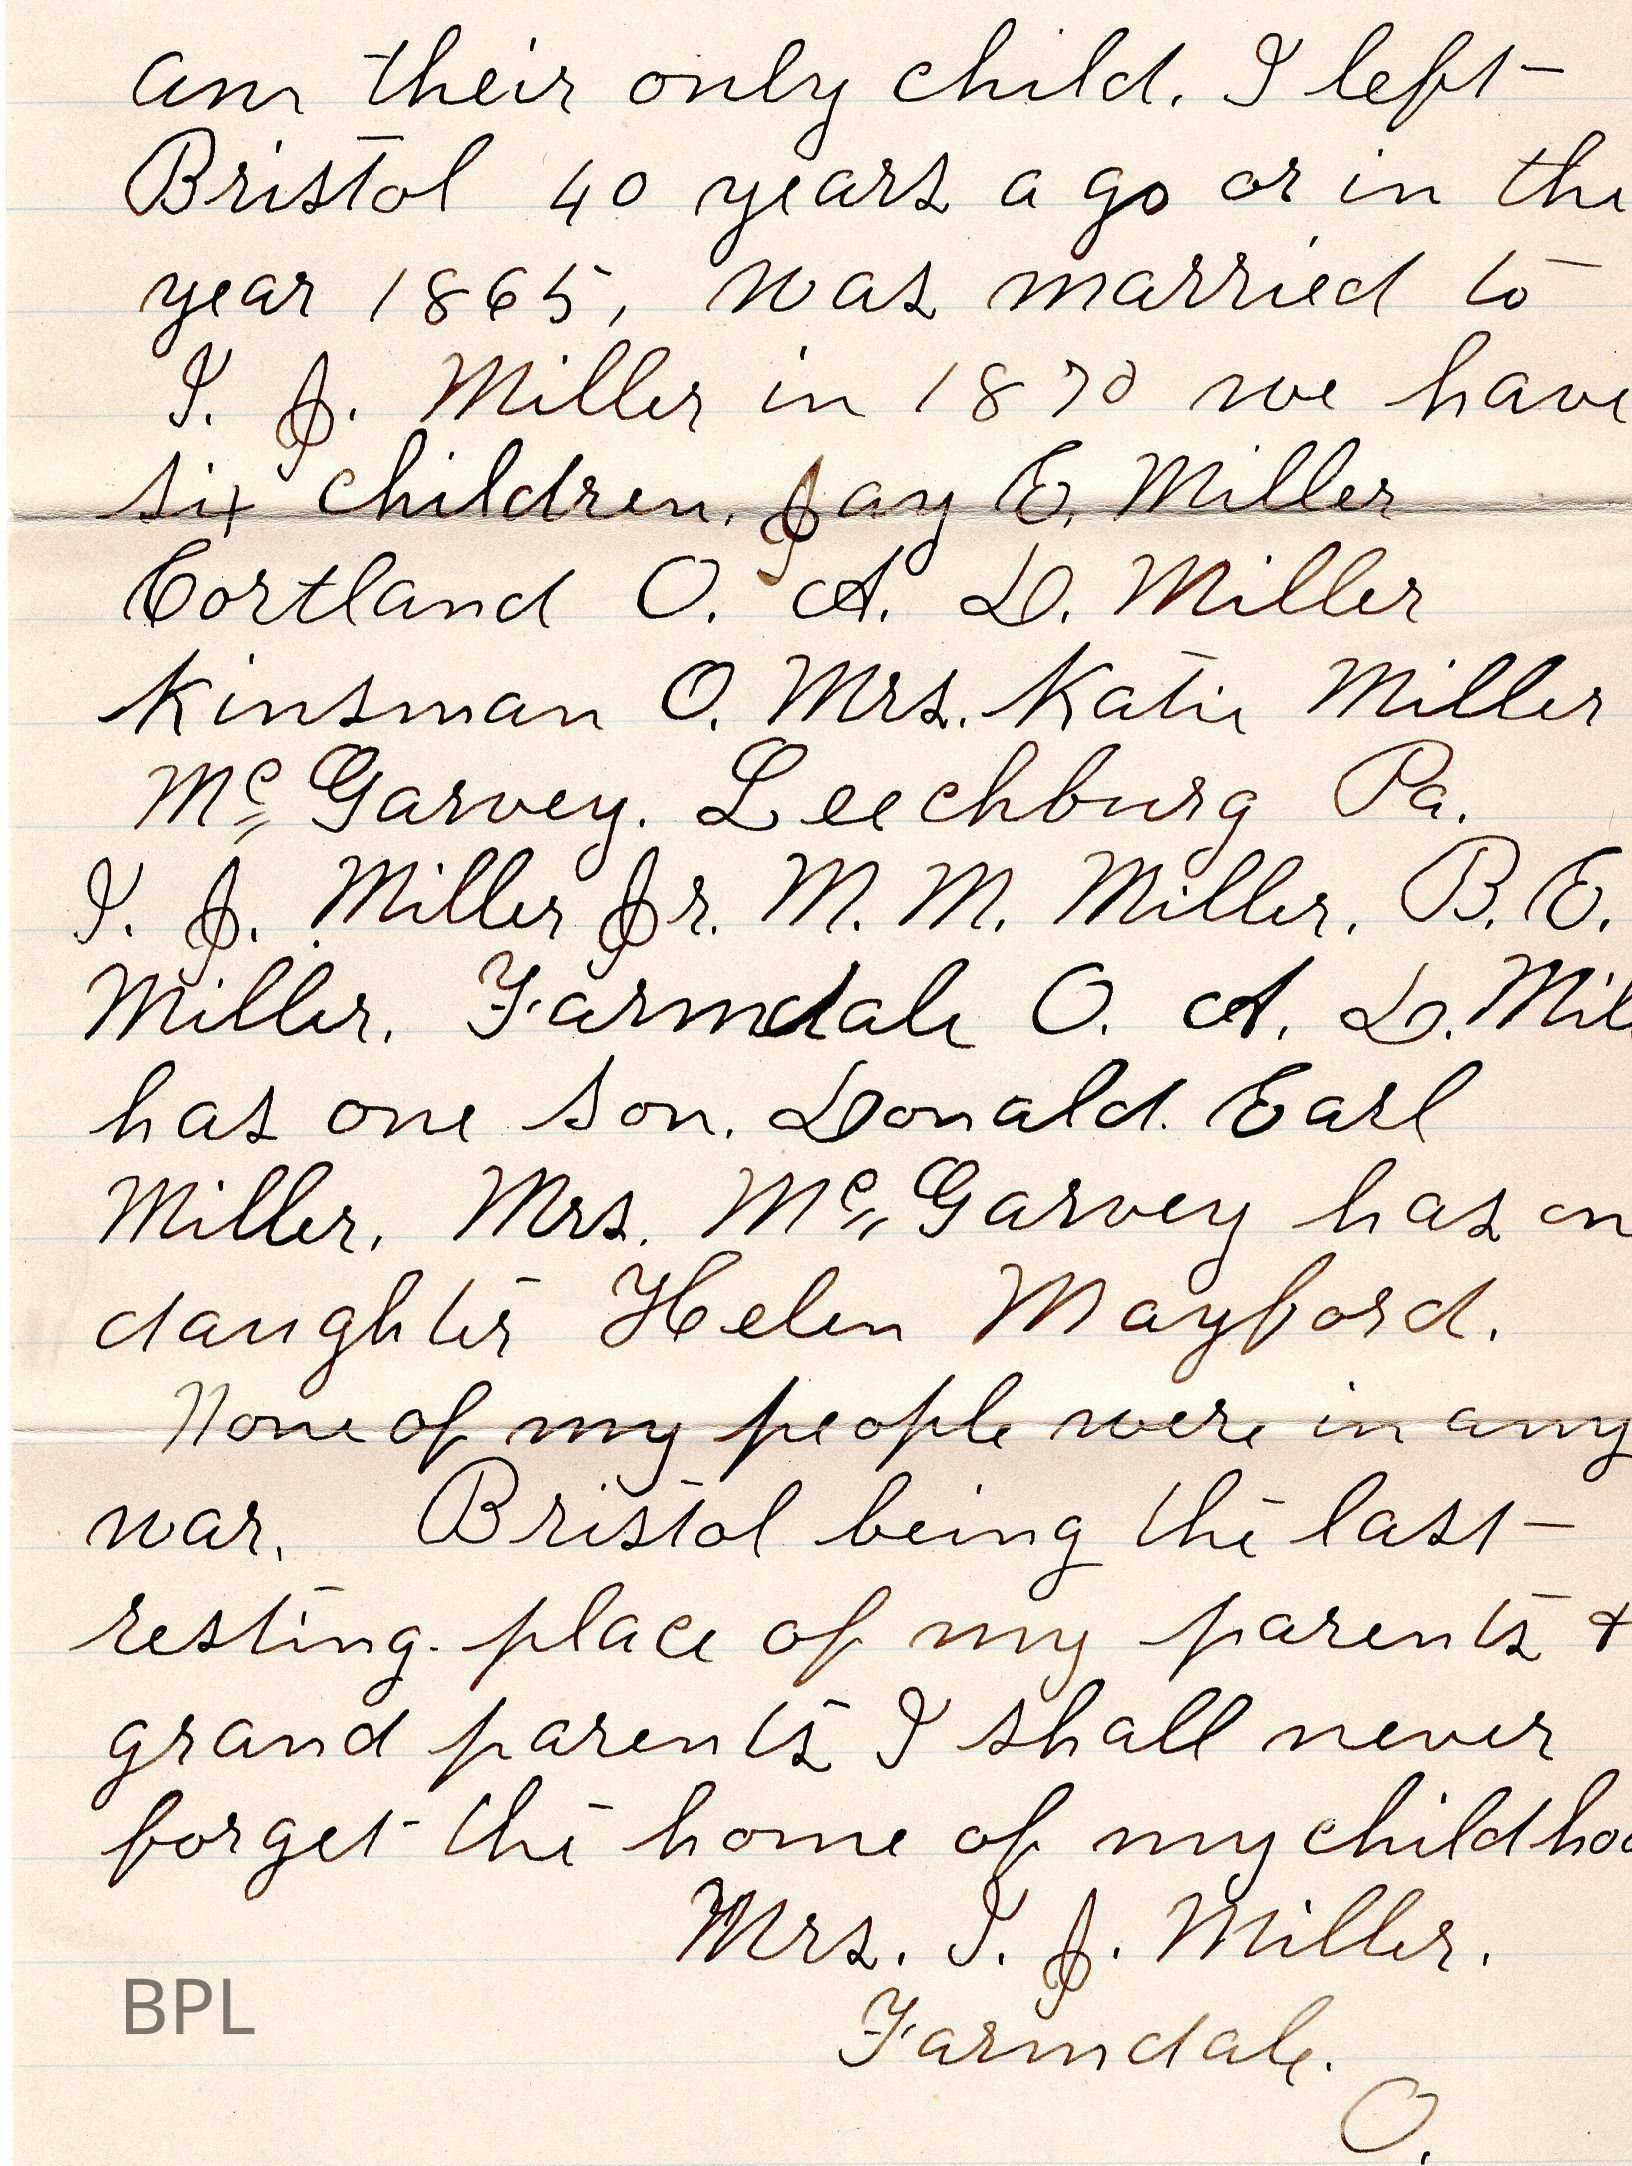 am their only child. I left
Bristol 40 years ago or in the
year 1865, was married to
I. J. Miller in 1870 we have
six children. Jay E. Miller
Cortland O. A. D. Miller
Kinsman O. Mrs. Katie Miller
McGarvey. Leechburg Pa.
I. J. Miller Jr. M. M. Miller. B. E.
Miller. Farmdale O. A. D. Mil
has one son. Donald. Earl
Miller. Mrs. McGarvey has on
daughter Helen Mayford.
None of my people were in any
war. Bristol being the last
resting place of my parents +
grand parents I shall never
forget the home of my childhoo
Mrs. I. J. Miller.
Farmdale.
O.
BPL